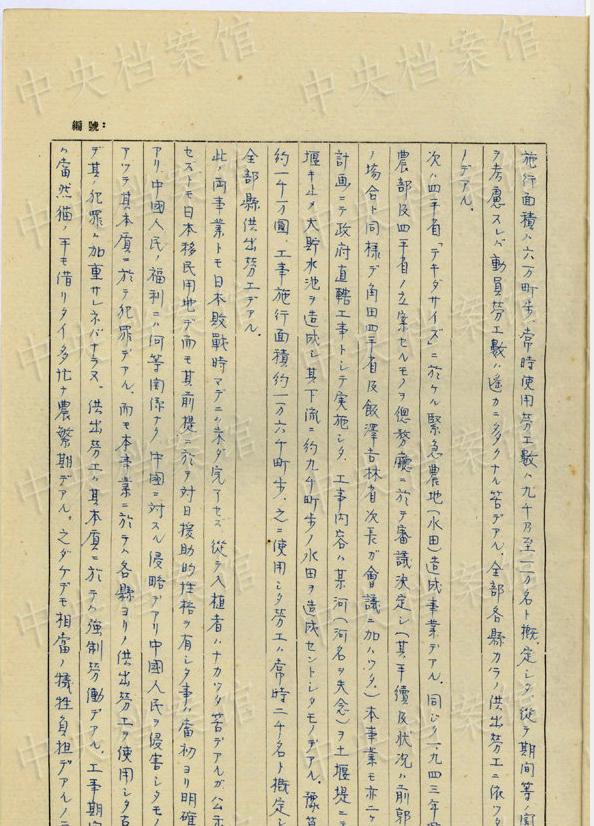 中央档案馆
中央档案馆
編號：
施行面積ハ六万町歩、常時使用労工数ハ九千乃至一万名ト概定シタ、従テ期間等ノ
ヲ考慮スレバ動員労工数ハ遥カニ多クナル筈デアル。全部各縣カラノ供出労工ニ依ツタ
ノデアル。
次ハ四平省「テキダサイズ」ニ於ケル緊急農地（水田）造成事業デアル。同ジク一九四三年
農部及四平省ノ立案セルモノヲ總務廳ニ於テ審議決定シ（其手續及状況ハ前郭
ノ場合ト同様デ角田四平省及飯澤吉林省次長ガ會議ニ加ハツタ）本事業モ亦二ヶ
計画ニテ政府直轄工事トシテ実施シタ。工事内容ハ某河（河名ヲ失念）ヲ土堰堤ニテ
堰キ止メ大貯水池ヲ造成シ其下流ニ約九千町歩ノ水田ヲ造成セントシタモノデアル。豫算
約一千万圓、工事施行面積約一万六千町歩、之ニ使用シタ労工ハ常時二千名ト概定シ
全部縣供出労工デアル。
此ノ両事業トモ日本敗戰時マデニハ未ダ完了セズ従テ入植者ハナカツタ筈デアルガ公示
セズトモ日本移民用地デ而モ其前提ニ於テ対日援助的性格ヲ有シタ事ハ當初ヨリ明確
アリ中國人民ノ福利ニハ何等関係ナク中國ニ対スル侵略デアリ中國人民ヲ侵害シタモノ
アツテ其本質ニ於テ犯罪デアル。而モ本事業ニ於テハ各縣ヨリノ供出労工ヲ使用シタ
デ其ノ犯罪ハ加重サレネバナラヌ。供出労工ハ其本質ニ於テハ強制労働デアル。工事期
ハ當然猫ノ手モ借リタイ多忙ナ農繁期デアル。之ダケデモ相當ノ犠牲負担デアルノニ